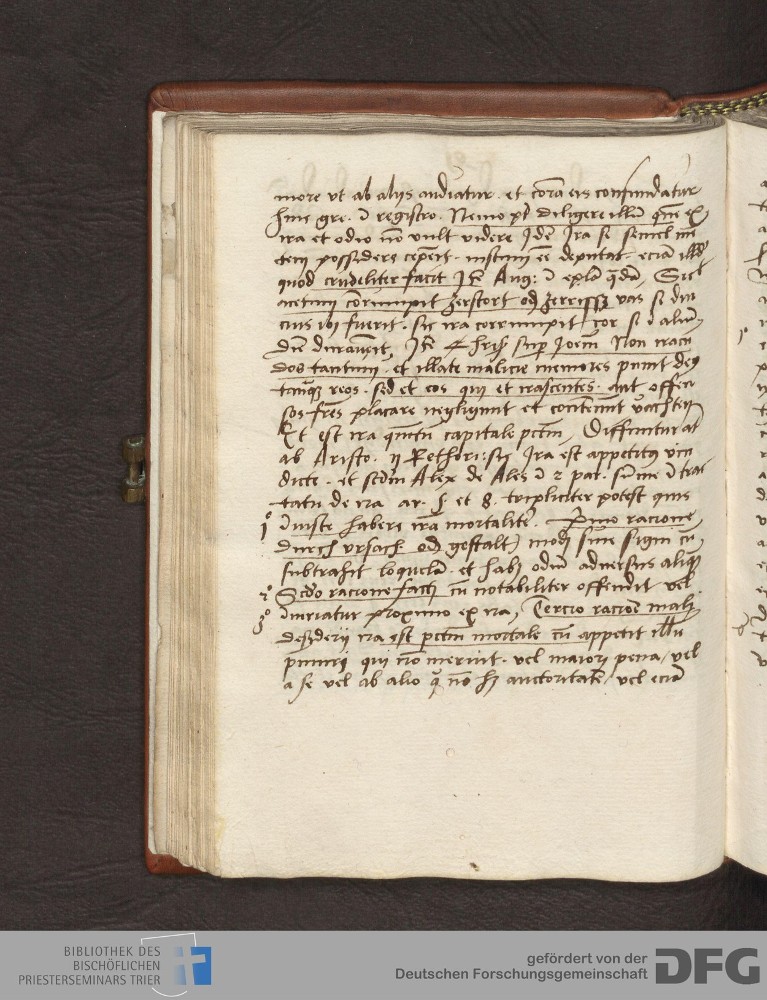 more vt ab alijs audiatur · et corā eis confundatur
hinc gre · ī registro · Nemo pt diligere illū quē ex
ira et odio nō vult videre Idē Ira si semel mē
tem possidere ceperit · iustum eē deputat eciā illd
quod crudeliter facit It Aug: ī epla qdā, Sic
acetum corrumpit zerstort odr vas si diu
cius ibi fuerit · sic ira corrumpit cor si ī aliū
diē duraverit, It Chris sup Joem Non iracū
dos tantum · et illate malicie memores punit deg
tanq reos · sed et eos qui et irascentes · aut offen
sos fres placare negligunt et contēnunt
Et est ira quintū capitale pctm, Diffinitur at
ab Aristo · ij Rethori: sic Ira est appetitg vin
dicte · et scdm Alex de Ales ī 2 par · sūme ī trac
tatu de ira ar · et 8 · tripliciter potest quis
1º īiuste habere irā mortalitē · Primo racione
durch vrsach odr gestalt modi sine signi cū
subtrahit loquelā · et habz odiū adversus aliq
2º Scdo racione facti cū notabiliter offendit vel
3º īiuriatur proximo ex ira, Tercio racioē mali
desyderij ira est pctm mortale cū appetit illū
puniri qui nō meruit · vel maiori pena, vel
a se vel ab alio q nō hz auctoritatē, vel eciā
BIBLIOTHEK DES
BISCHÖFLICHEN
PRIESTERSEMINARS TRIER
gefördert von der
Deutschen Forschungsgemeinschaft
DFG